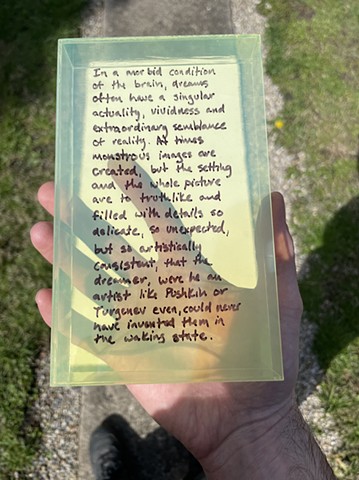 In a morbid condition
of the brain, dreams
often have a singular
actuality, vividness and
extraordinary semblance
of reality. At times
monstrous images are
created, but the setting
and the whole picture
are so truthlike and
filled with details so
delicate, so unexpected,
but so artistically
consistent, that the
dreamer, were he an
artist like Pushkin or
Turgenev even, could never
have invented them in
the waking state.